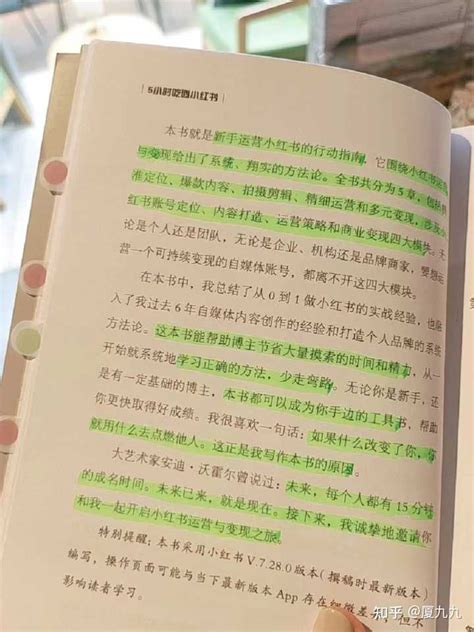 5小时吃透小红书
本书就是新手运营小红书的行动指南,它围绕小红书运营
与变现给出了系统、翔实的方法论。全书共分为5章,包括精
准定位、爆款内容、拍摄剪辑、精细运营和多元变现,涉及小
红书账号定位、内容打造、运营策略和商业变现四大模块。无
论是个人还是团队,无论是企业、机构还是品牌商家,要想运
营一个可持续变现的自媒体账号,都离不开这四大模块。
在本书中,我总结了从0到1做小红书的实战经验,也融
入了我过去6年自媒体内容创作的经验和打造个人品牌的系统
方法论。这本书能帮助博主节省大量摸索的时间和精力,从一
开始就系统地学习正确的方法,少走弯路。无论你是新手,还
是有一定基础的博主,本书都可以成为你手边的工具书,帮助
你更快取得好成绩。我很喜欢一句话:如果什么改变了你,你
就用什么去点燃他人。这正是我写作本书的原因。
大艺术家安迪·沃霍尔曾说过:未来,每个人都有15分钟
的成名时间。未来已来,就是现在。接下来,我诚挚地邀请你
和我一起开启小红书运营与变现之旅。
特别提醒:本书采用小红书V.7.28.0版本(撰稿时最新版本)
编写,操作页面可能与当下最新版本App存在细微差 但不
影响读者学习。
知乎 @厦九九